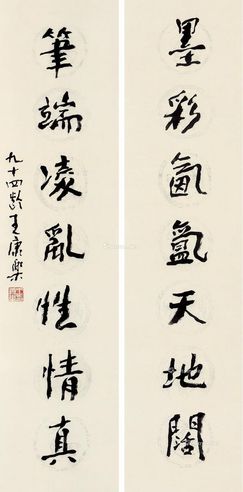 墨彩氤氲天地闊
筆端凌亂性情真
九十四齡王康樂